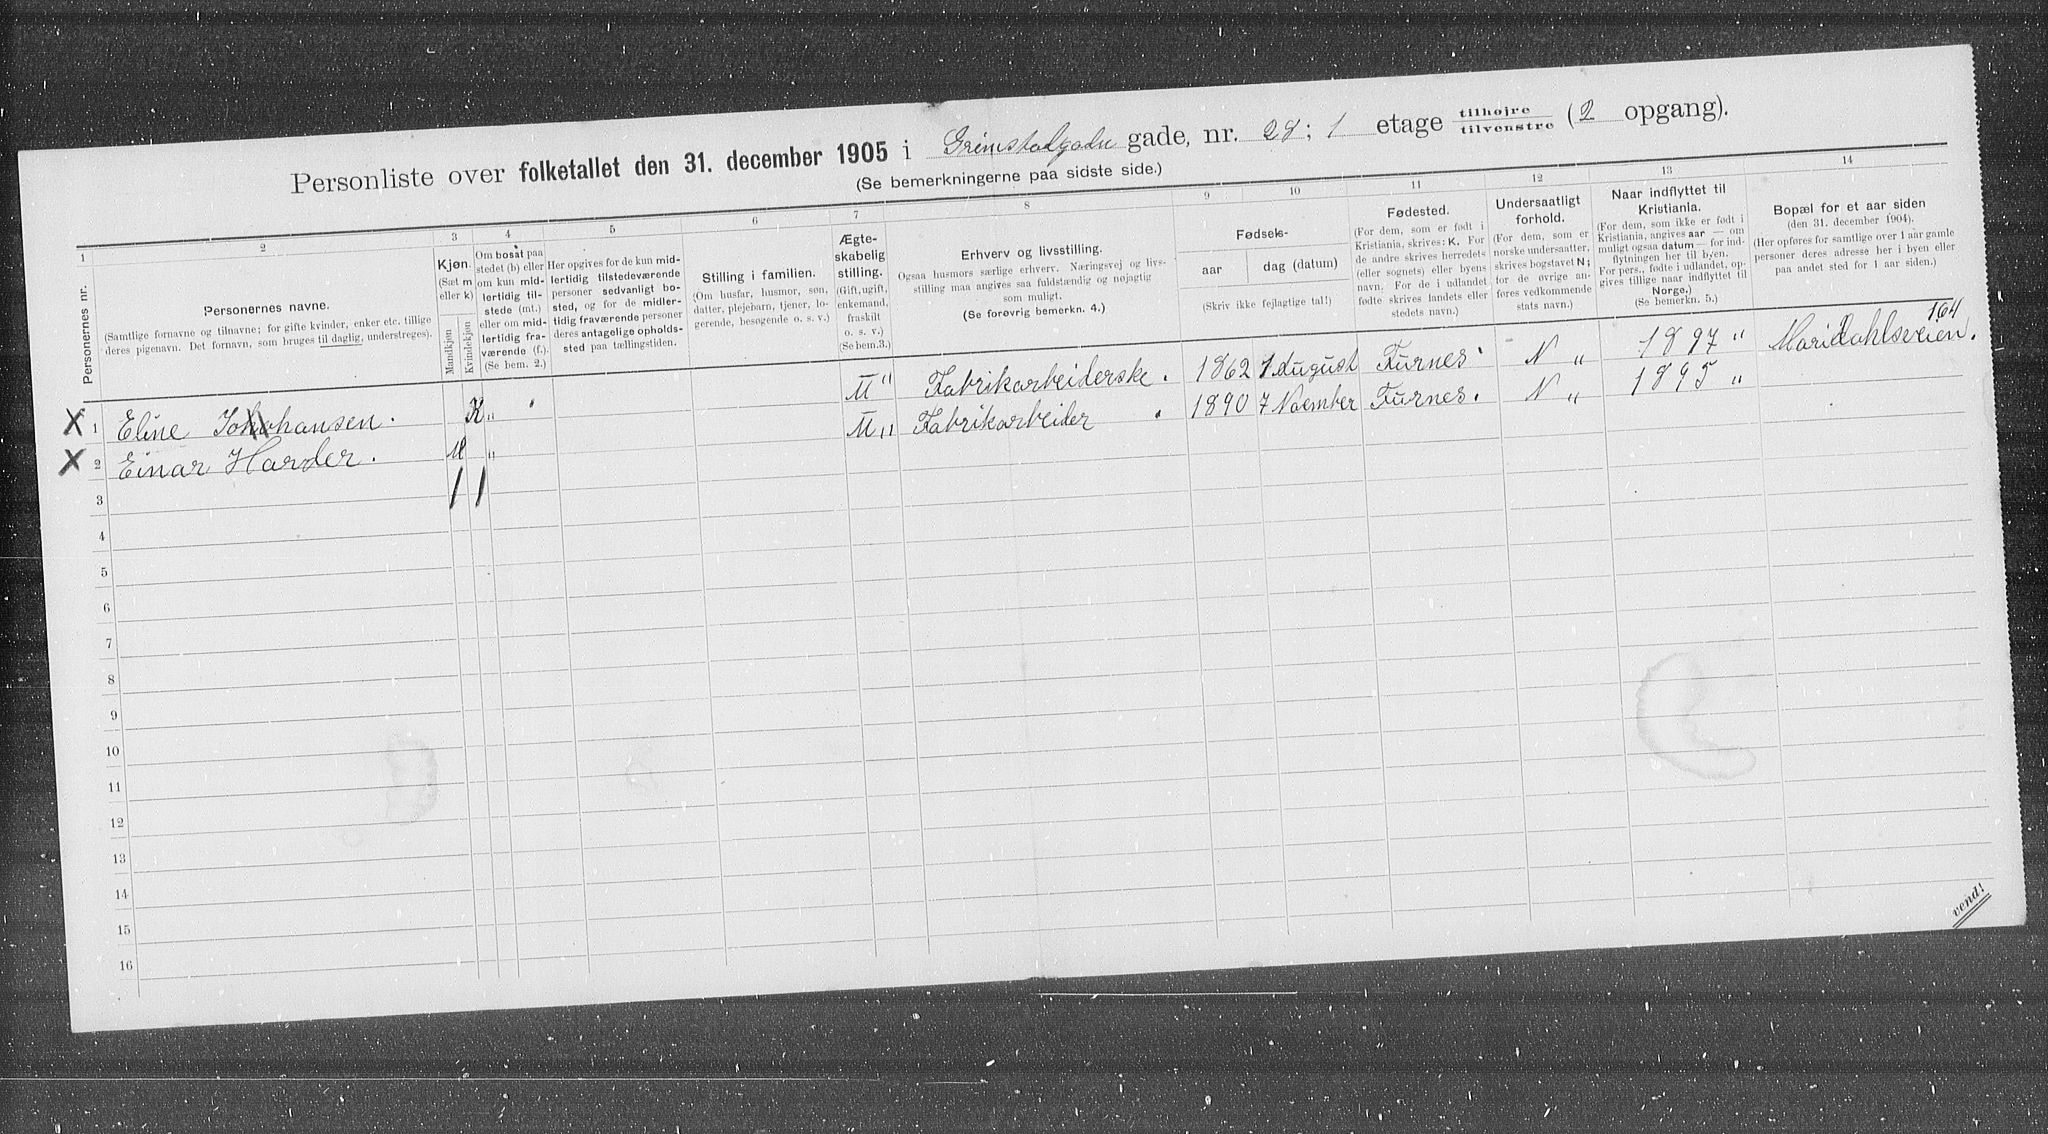 Personliste over folketallet den 31. december 1905 i Grimstadgaden gade, nr. 28; 1 etage tilhøjre tilvenstre (2 opgang).
(Se bemerkningerne paa sidste side.)
1 2 3 4 5 6 7 8 9 10 11 12 13 14
Personernes nr.
Personernes navne.
(Samtlige fornavne og tilnavne; for gifte kvinder, enker etc. tillige
deres pigenavn. Det fornavn, som bruges til daglig, understreges).
Kjøn.
(Sæt m
eller k)
Mandkjøn
Kvindekjøn
Om bosat paa
stedet (b) eller
om kun mid-
lertidig til-
stede (mt.)
eller om mid-
lertidig fra-
værende (f.)
(Se bem. 2.)
Her opgives for de kun mid-
lertidig tilstedeværende
personer sedvanligt bo-
sted, og for de midler-
tidig fraværende personer
deres antagelige opholds-
sted paa tællingstiden.
Stilling i familien.
(Om husfar, husmor, søn,
datter, plejebarn, tjener, lo-
gerende, besøgende o. s. v.)
Ægte-
skabelig
stilling.
(Gift, ugift,
enkemand,
fraskilt
o. s. v.)
(Se bem.3.)
Erhverv og livsstilling.
Ogsaa husmors særlige erhverv. Næringsvej og livs-
stilling maa angives saa fuldstændig og nøjagtig
som muligt.
(Se forøvrig bemerkn. 4.)
Fødsels-
aar dag (datum)
(Skriv ikke fejlagtige tal!)
Fødested.
(For dem, som er født i
Kristiania, skrives: K. For
de andre skrives herredets
(eller sognets) eller byens
navn. For de i udlandet
fødte skrives landets eller
stedets navn.)
Undersaatligt
forhold.
(For dem, som er
norske undersaatter,
skrives bogstavet N;
for de øvrige an-
føres vedkommende
stats navn.)
Naar indflyttet til
Kristiania.
(For dem, som ikke er født i
Kristiania, angives aar — om
muligt ogsaa datum — for ind-
flytningen her til byen.
For pers., fødte i udlandet, op-
gives tillige naar indflyttet til
Norge.)
(Se bemerkn. 5.)
Bopæl for et aar siden
(den 31. december 1904).
(Her opføres for samtlige over 1 aar gamle
personer deres adresse her i byen eller
paa andet sted for 1 aar siden.)
X 1 Eline Johohansen. K " U " Fabrikarbeiderske. 1862 7 August Furnes. N " 1897 " Maridahlsveien. 164
X 2 Einar Harder. M " U " Fabrikarbeider. 1890 7 Noember Furnes. N " 1895 "
3 1 1
4
5
6
7
8
9
10
11
12
13
14
15
16
vend!